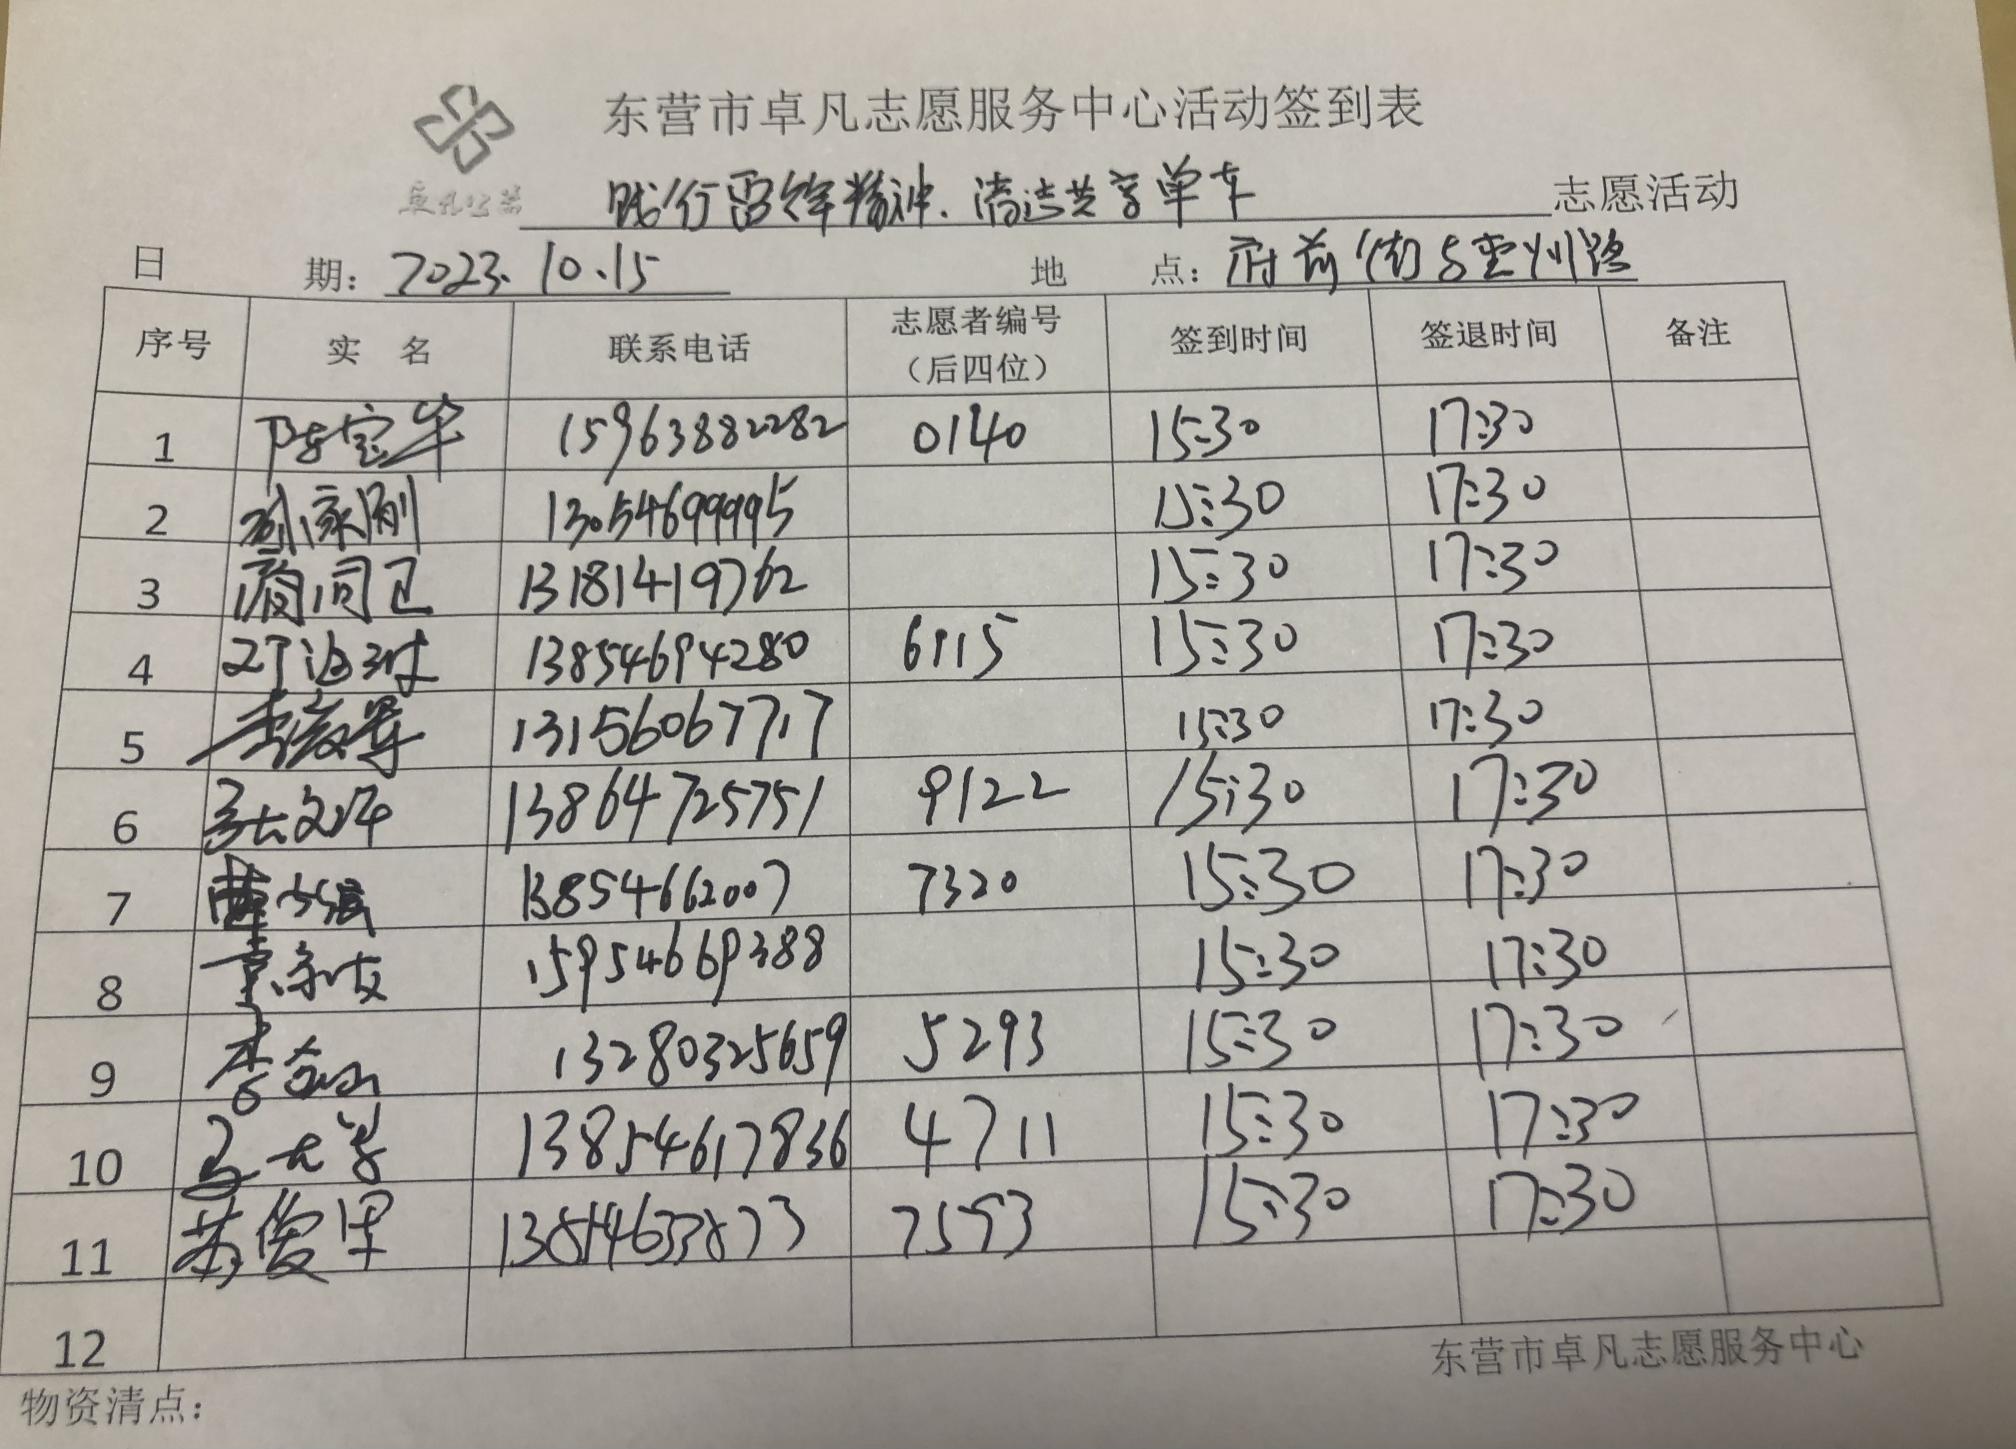 东营市卓凡志愿服务中心活动签到表
卓凡公益
践行雷锋精神.清洁共享单车 志愿活动
日 期: 2023.10.15 地 点: 府前街与登州路
序号 实 名 联系电话 志愿者编号（后四位） 签到时间 签退时间 备注
1 陈宝华 15963882282 0140 15:30 17:30
2 孙家刚 13054699995 15:30 17:30
3 13181419762 15:30 17:30
4 13854694280 6115 15:30 17:30
5 李 军 13156067717 15:30 17:30
6 13864725751 9122 15:30 17:30
7 曹 13854662007 7320 15:30 17:30
8 15954669388 15:30 17:30
9 李 13280325659 5293 15:30 17:30
10 13854617836 4711 15:30 17:30
11 苏俊 7593 15:30 17:30
12
东营市卓凡志愿服务中心
物资清点：